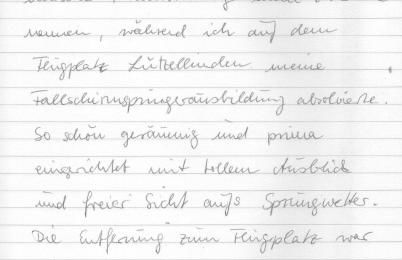 nennen, während ich auf dem
Flugplatz Lützellinden meine
Fallschirmsprungausbildung absolvierte.
So schön geräumig und prima
eingerichtet mit tollem Ausblick
und freier Sicht aufs Sprungwetter.
Die Entfernung zum Flugplatz war